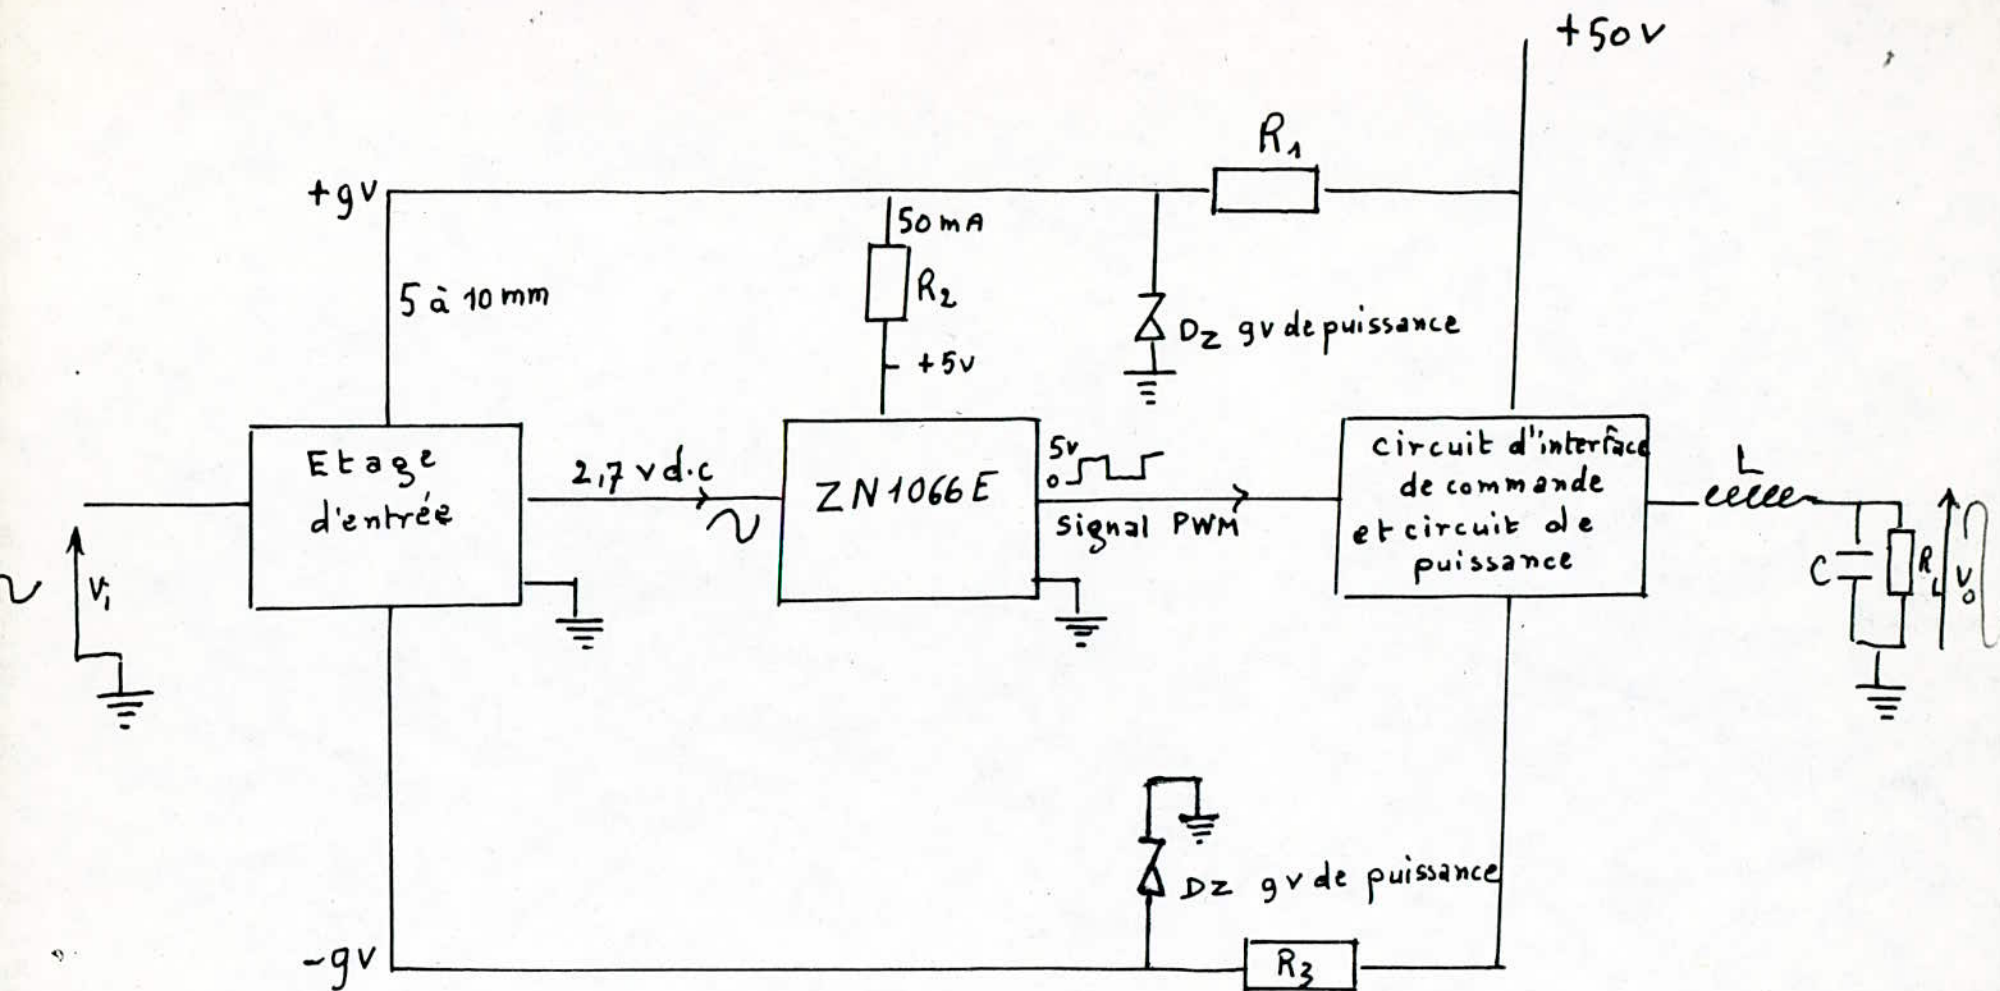 +50V
R1
+9V
50mA
R2
5 à 10 mm
Dz 9v de puissance
+5v
Etage
d'entrée
2,7 v d.c
ZN1066E
5v
0
Signal PWM
circuit d'interface
de commande
et circuit de
puissance
L
Vi
C
RL
Vo
DZ 9v de puissance
-9V
R3